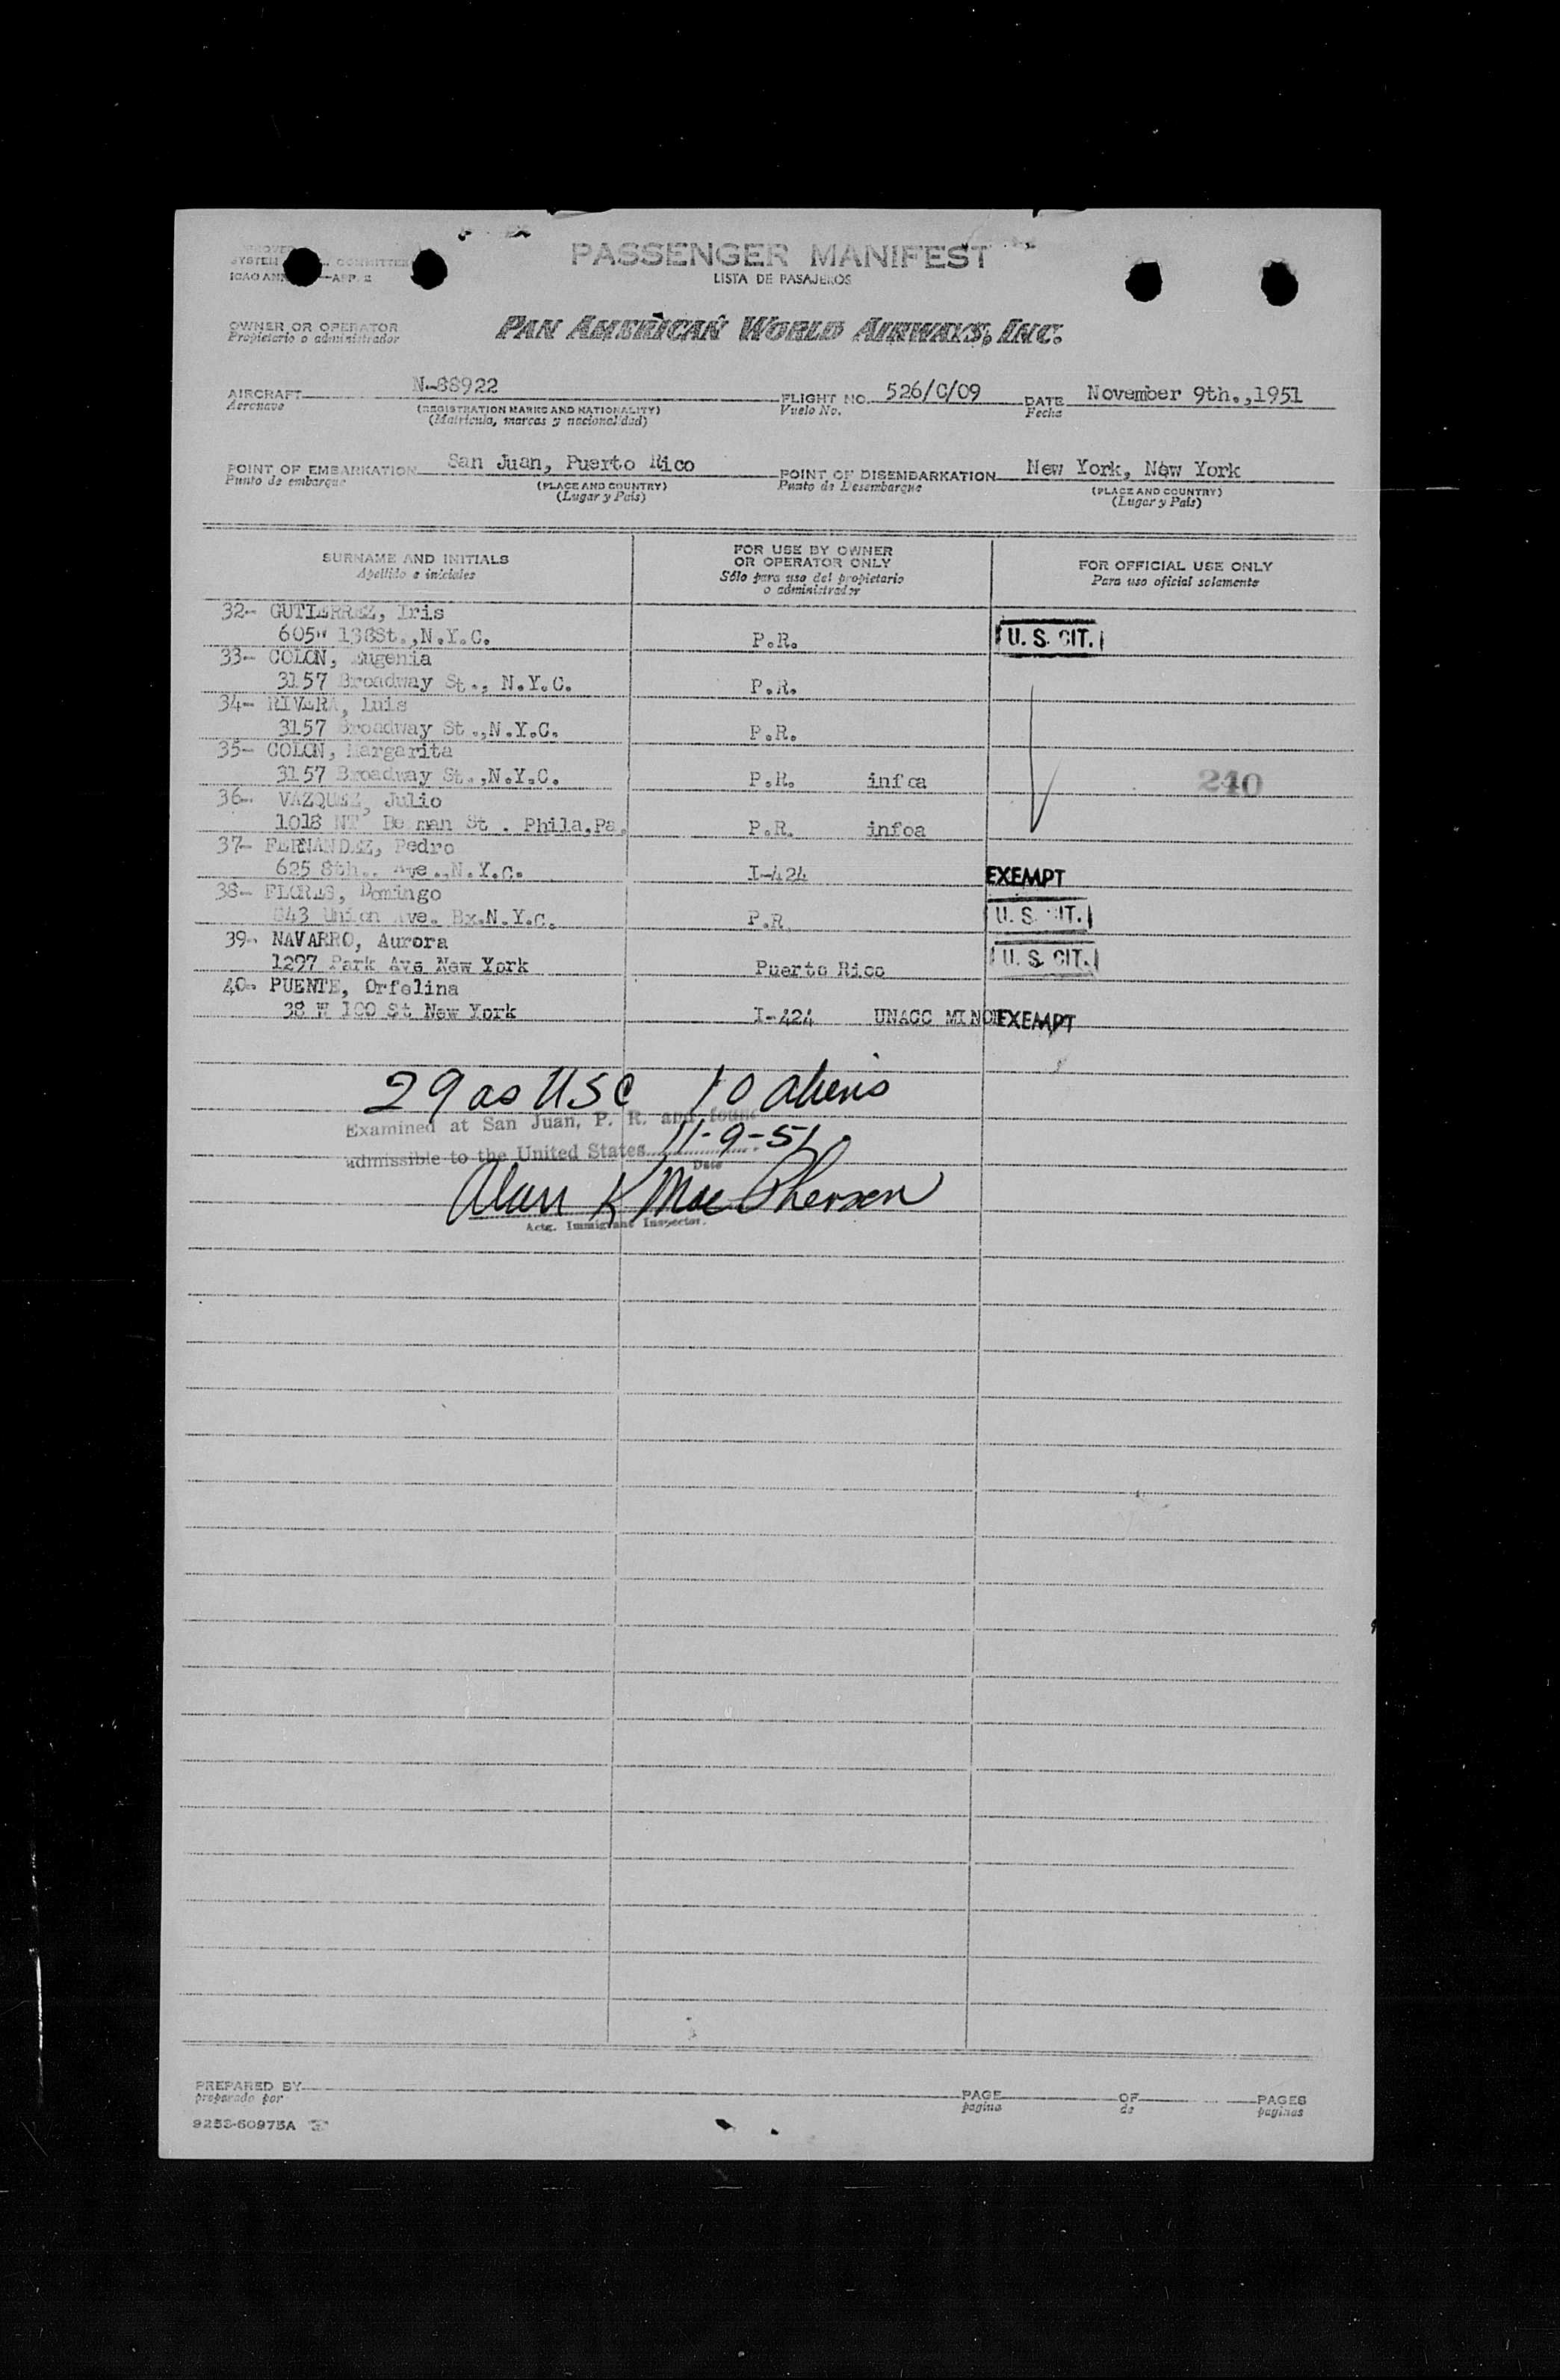 SYSTEM COMMITTEE
ICAO ANN —APP. 2
PASSENGER MANIFEST
LISTA DE PASAJEROS
OWNER OR OPERATOR
Propietario o administrador
PAN AMERICAN WORLD AIRWAYS, INC.
AIRCRAFT N-88922 FLIGHT NO. 526/C/09 DATE November 9th.,1951
Aeronave (REGISTRATION MARKS AND NATIONALITY) Vuelo No. Fecha
(Matrícula, marcas y nacionalidad)
POINT OF EMBARKATION San Juan, Puerto Rico POINT OF DISEMBARKATION New York, New York
Punto de embarque (PLACE AND COUNTRY) Punto de Desembarque (PLACE AND COUNTRY)
(Lugar y País) (Lugar y País)
SURNAME AND INITIALS FOR USE BY OWNER OR OPERATOR ONLY FOR OFFICIAL USE ONLY
Apellido e iniciales Sólo para uso del propietario o administrador Para uso oficial solamente
32- GUTIERREZ, Iris
605W 138St.,N.Y.C. P.R. U. S. CIT.
33- COLON, Eugenia
3157 Broadway St., N.Y.C. P.R.
34- RIVERA, Luis
3157 Broadway St.,N.Y.C. P.R.
35- COLON, Margarita
3157 Broadway St.,N.Y.C. P.R. infoa 240
36- VAZQUEZ, Julio
1018 NT St. Phila,Pa. P.R. infoa
37- FERNANDEZ, Pedro
625 8th.. Ave.,N.Y.C. I-424 EXEMPT
38- FLORES, Domingo
843 Union Ave. Bx.N.Y.C. P.R. U. S. CIT.
39- NAVARRO, Aurora
1297 Park Ave New York Puerto Rico U. S. CIT.
40- PUENTE, Orfelina
38 W 100 St New York I-424 UNACC MINOR EXEMPT
29 as USC 10 aliens
Examined at San Juan, P. R. and found
admissible to the United States 11-9-51
Date
Alan K MacPherson
Actg. Immigrant Inspector.
PREPARED BY PAGE OF PAGES
preparado por pagina de paginas
9253-60975A